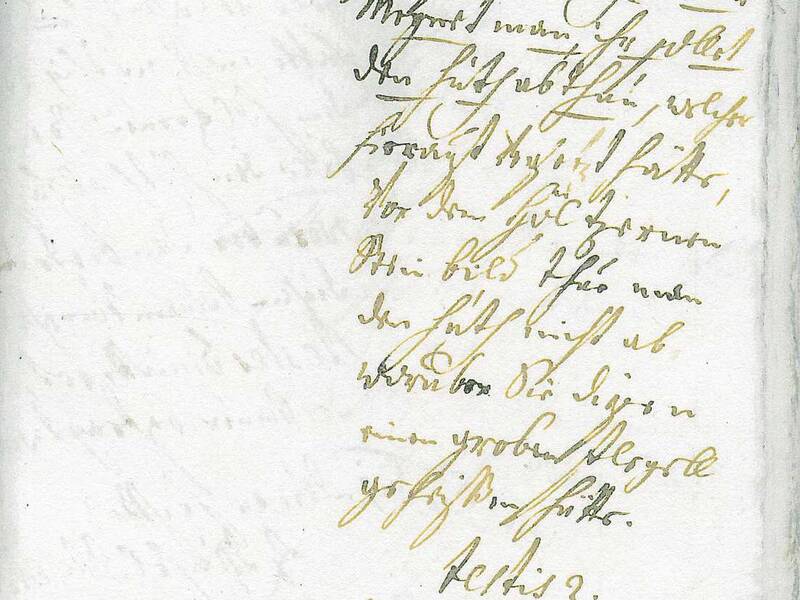 man ihr sollet
den huth abthun, welcher
hierauf versezt hätte,
Vor dem höltzernen
Stein bild thue man
den huth nicht ab,
worüber Sie diesen
einen groben flegell
geheissen hätte.
testis 2.